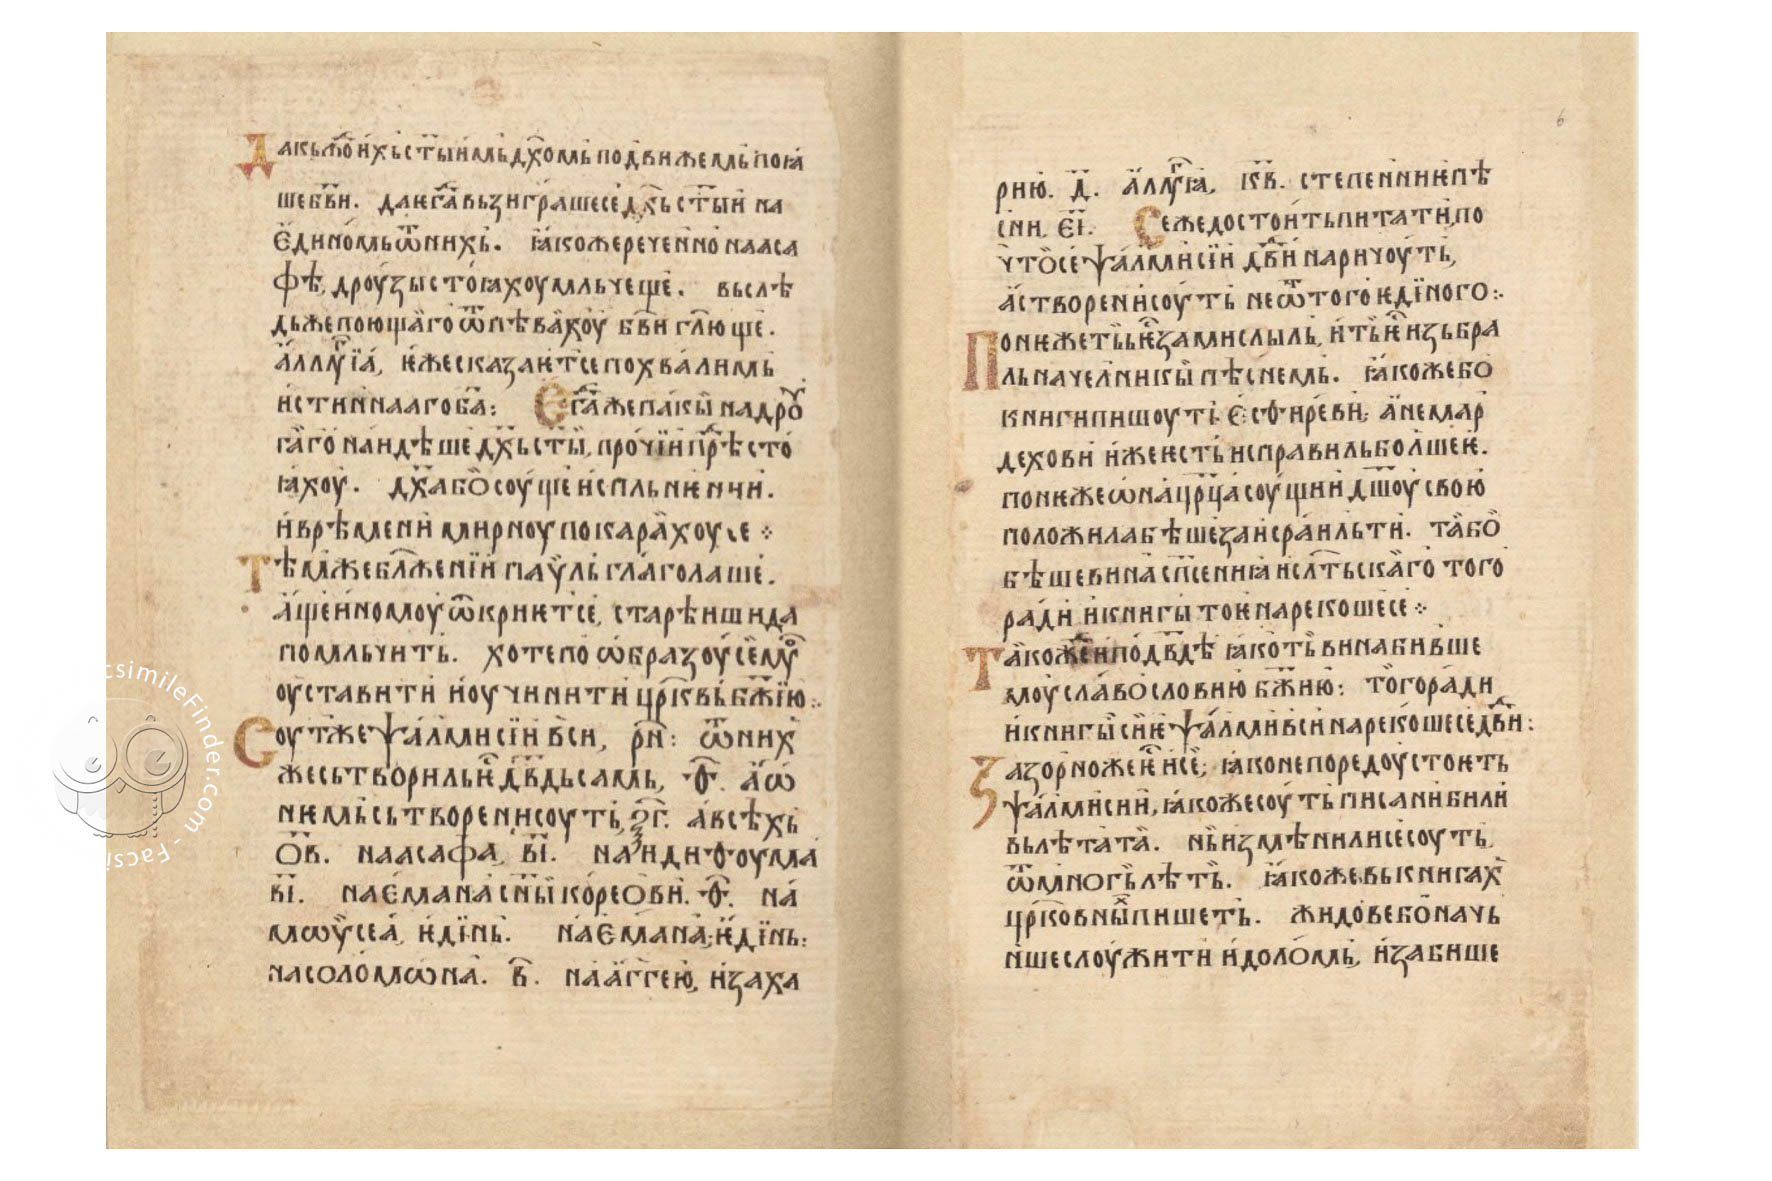 Дакьжо ихь стыимь дхомь подвижемь пога
ше бви. да ѥгда вьзиграше се дхь стыи на
единомь ѿ нихь. ꙗкоже реченно на аса
фѣ, дроузы стоꙗхоу мльчеще. вьслѣ
дьже поющаго ѿпѣвахоу бви глюще.
аллугїа, ѥже сказаѥт се похвалимь
истиннааго ба: Егдаже пакы на дроу
гаго наидѣше дхь сты, прочїи прѣсто
ꙗхоу. дха бо соуще испльнѥнни.
и врѣмени мирноу покараахоу се ⁘
Тѣмже блженїи пауль глаголаше.
аще иномоу ѿкриѥт се, старѣишида
помльчить. хоте по ѡбразоу семоу
оуставити и оучинити црковь бжїю:.
Соут же ѱалмисїи вси, рн: ѿ них
же сьтворильѥ двдь самь, ѳ. а ѡ
нѥмь сьтворени соуть, ог. а всѣхь
ов. на асафа, ві. на идиѳоума
ві. на емана сны кореови. ѳ. на
мѡусеа, ѥдїнь. на емана; ѥдїнь:
на соломѡна. в. на аггею, и заха
6
рию. д. аллугїа, кв. степеннинѥ пѣ
сни. еі. Се же достоить питати, по
что се ѱалмисїи дви наричоуть,
а створени соуть не ѿ того ѥдїного:.
Понѥже ть ѥ замислыль, и ть ѥ изьбра
ль начелникы пѣснемь. ꙗкоже бо
книги пишоуть есѳиреви; а не мар
дехови иже ѥсть исправиль болшеѥ.
понѥже ѡна црца соущи и дшоу свою
положила бѣше за исраильти. та бо
бѣше вина спсениꙗ исльтьскаго того
ради и книгы тоѥ нарекоше се ⁘
Такожеи по двдѣ ꙗко ть вина бивше
моу славословию бжию: того ради
и книгы сиѥ ѱалми вси нарекоше се дви:
Зазорноже ѥ и се; ꙗко не по редоу стоѥть
ѱалмисии, ꙗкоже соуть писани били
вь лѣта та. нь измѣнили се соуть,
ѿ многь лѣть. ꙗкоже вь книгах
црковных пишеть. жидове бо начь
нше слоужити идоломь, и забише